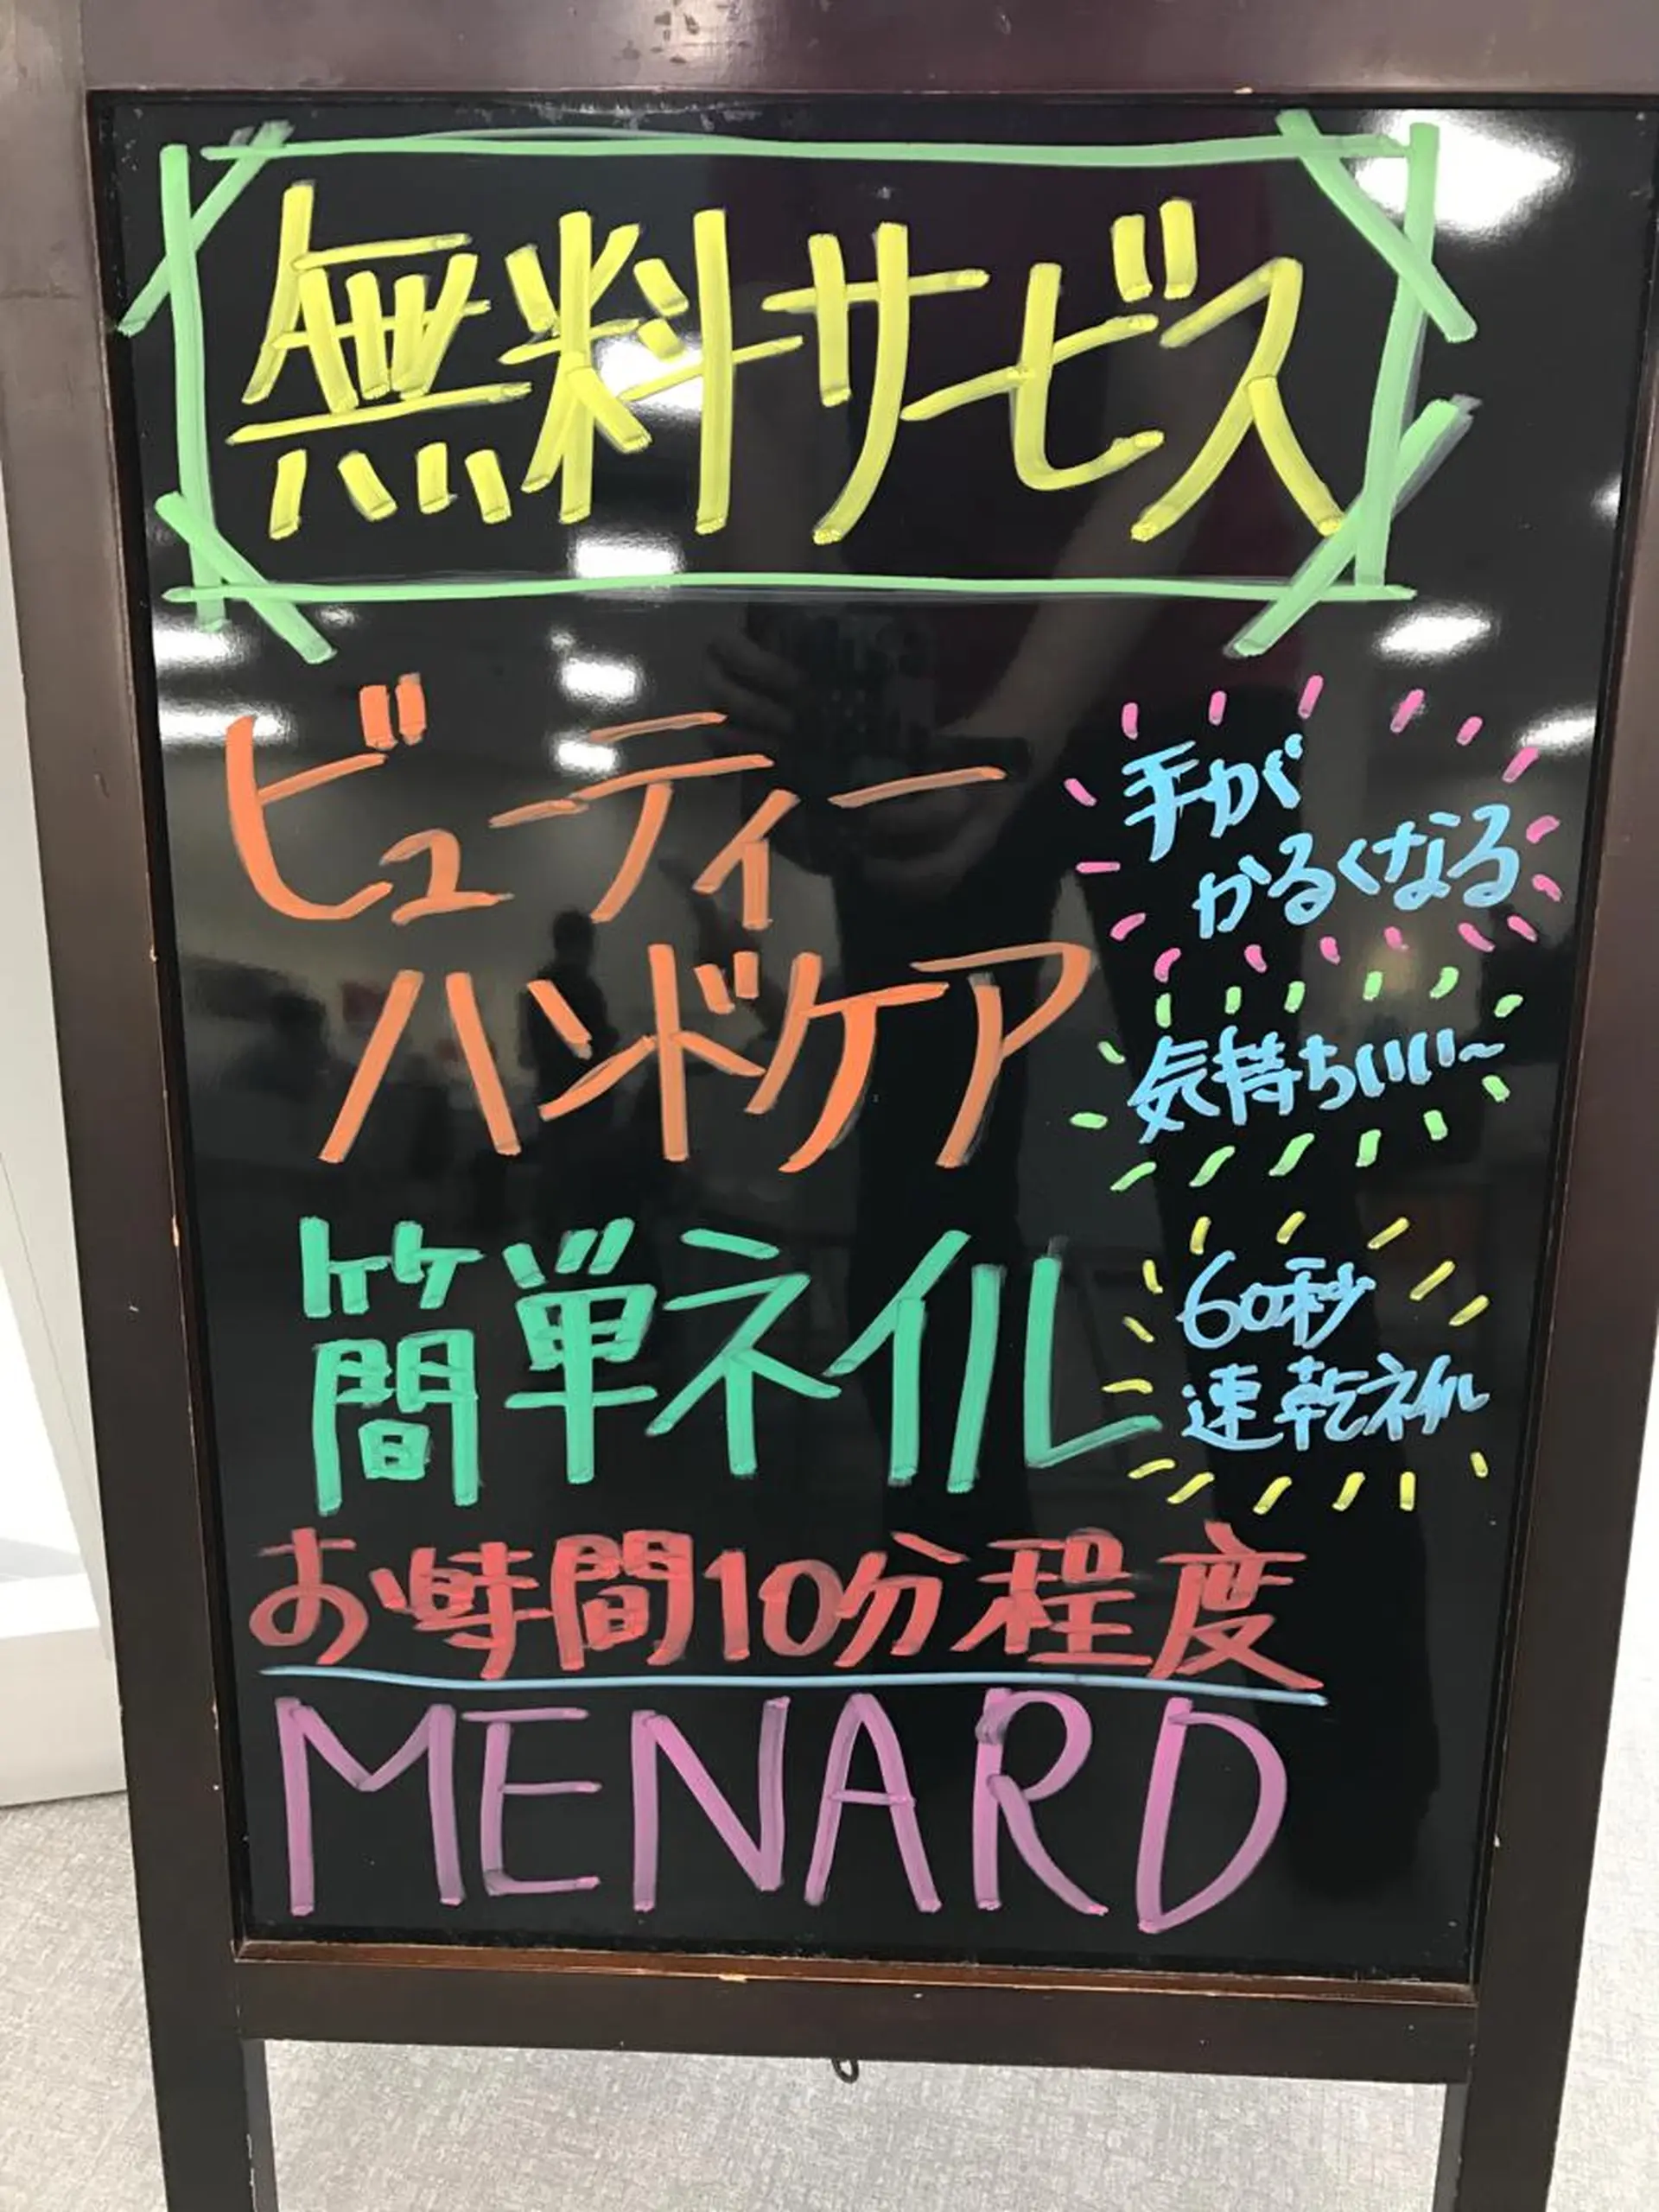 無料サービス
ビューティー
手が
かるくなる
ハンドケア
気持ちいい〜
簡単ネイル
60秒
速乾ネイル
お時間10分程度
MENARD